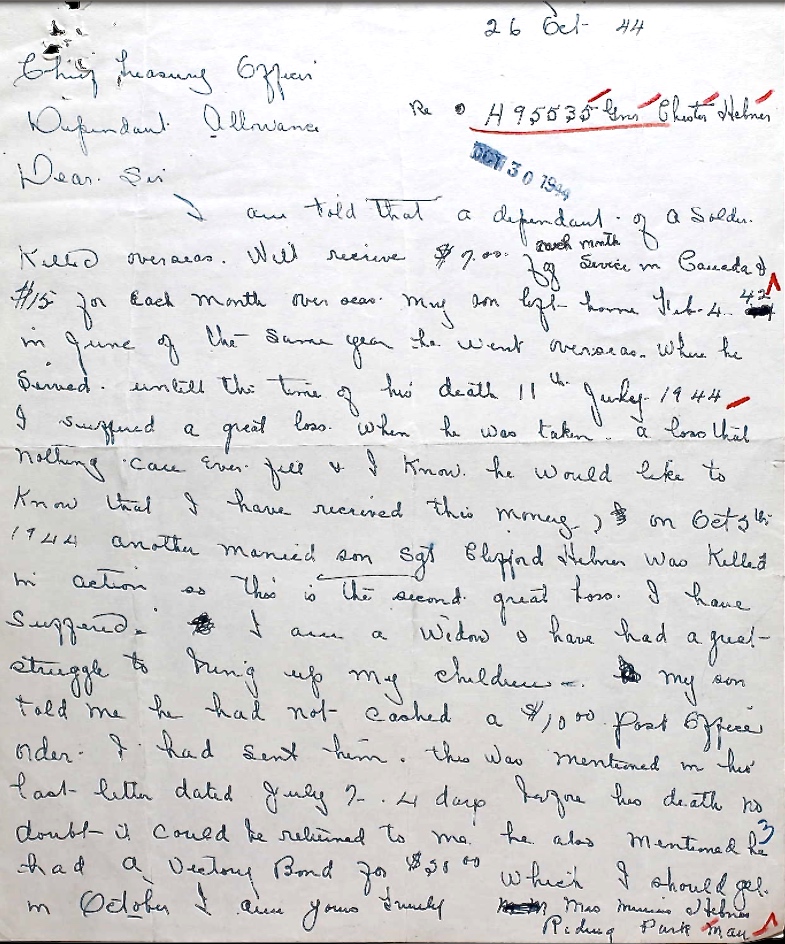 26 Oct 44
Chief Treasury Officer
Dependant Allowance
Re H95535 Gnr Chester Hebner
OCT 30 1944
Dear Sir
I am told That a dependant of a Solder
Killed overseas. Will recieve $7.00 each month
of Service in Canada &
$15 for each month over seas. my son left home Feb. 4. 42
in June of the same year he went overseas. Where he
Served. untill the time of his death 11th July 1944
I suffered a great loss. When he was taken. a loss that
nothing can ever fill & I Know he would like to
Know that I have recieved this money, on Oct 5th
1944 another married son Sgt Clifford Hebner was Killed
in action so this is the second great loss. I have
Suffered. I am a Widow & have had a great
struggle to bring up my children my son
told me he had not cashed a $10.00 Post Office
order I had sent him. this was mentioned in his
last letter dated July 7. 4 days before his death no
doubt it could be returned to me he also mentioned he
3
had a Victory Bond for $50.00 which I should get
in October I am yours Truely Mrs Minnie Hebner
Riding Park Man